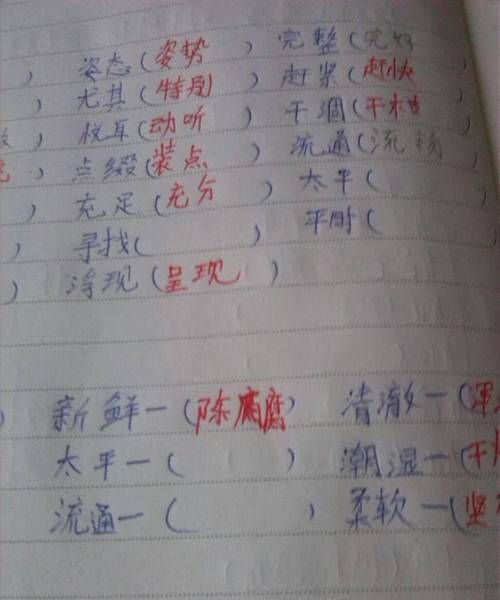 ) 姿态(姿势) 完整(完好
) 尤其(特别) 赶紧(赶快
) 悦耳(动听) 干涸(干枯)
) 点缀(装点) 流通(流畅)
) 充足(充分) 太平( )
) 寻找( ) 平时( )
) 浮现(呈现)
) 新鲜—(陈腐) 清澈—(浑
太平—( ) 潮湿—(干
流通—( ) 柔软—(坚